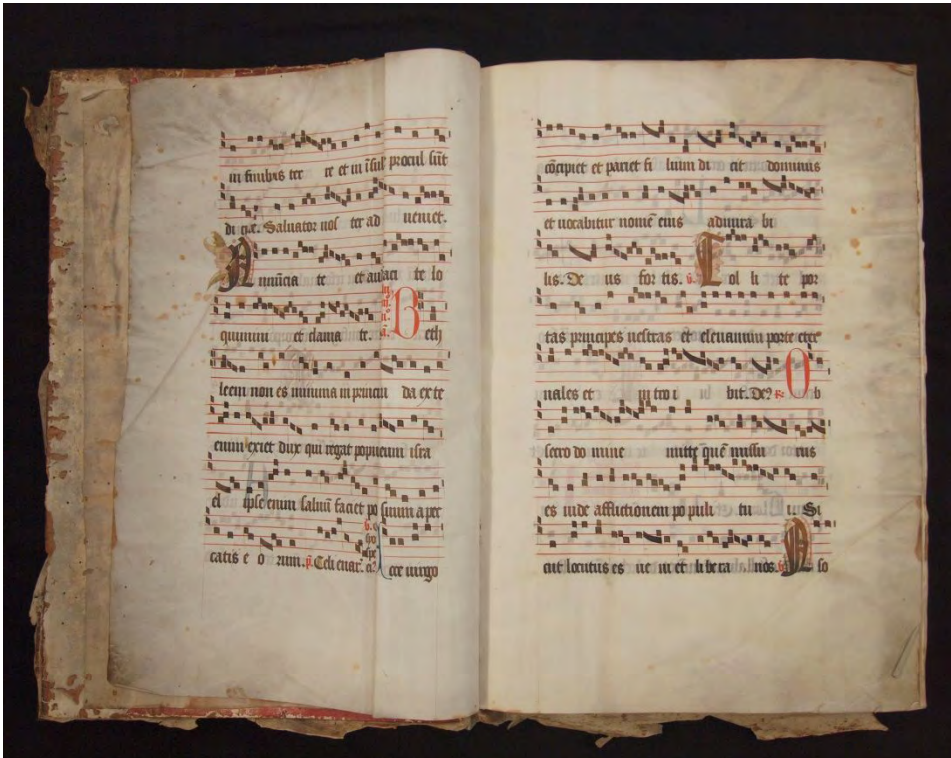 in finibus ter re et in īsul procul sūt
di cite. Saluator nos ter ad ueniet.
A nnūcia te et au aci te lo
quimini et clama te. B eth
leem non es minima in princi da ex te
enim exiet dux qui regat populum isra
el ipse enim saluū faciet po sinum a pec
catis e o rum. Celi enar. cce uirgo
cōcipiet et pariet fi lium di cit dominus
et uocabitur nomē eius admira bi
lis. De us for tis. v. T ol li te por
tas principes uestras et eleuamini porte eter
nales et in tro i bit. De⁹ O b
secro do mine mitte quē missu rus
es uide afflictionem po puli tu i Si
cut locutus es ue ni et li be ra nos. A so